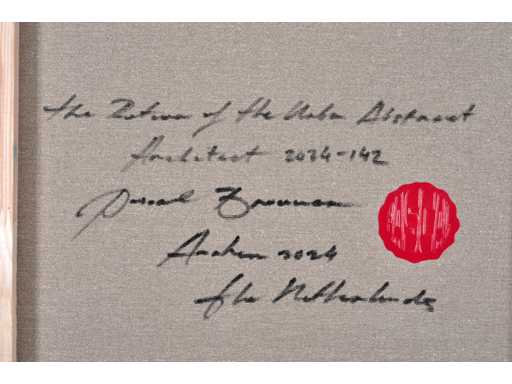 The Return of the Urban Abstract
Architect 2024-142
Pascal Brouwer
Arnhem 2024
The Netherlands